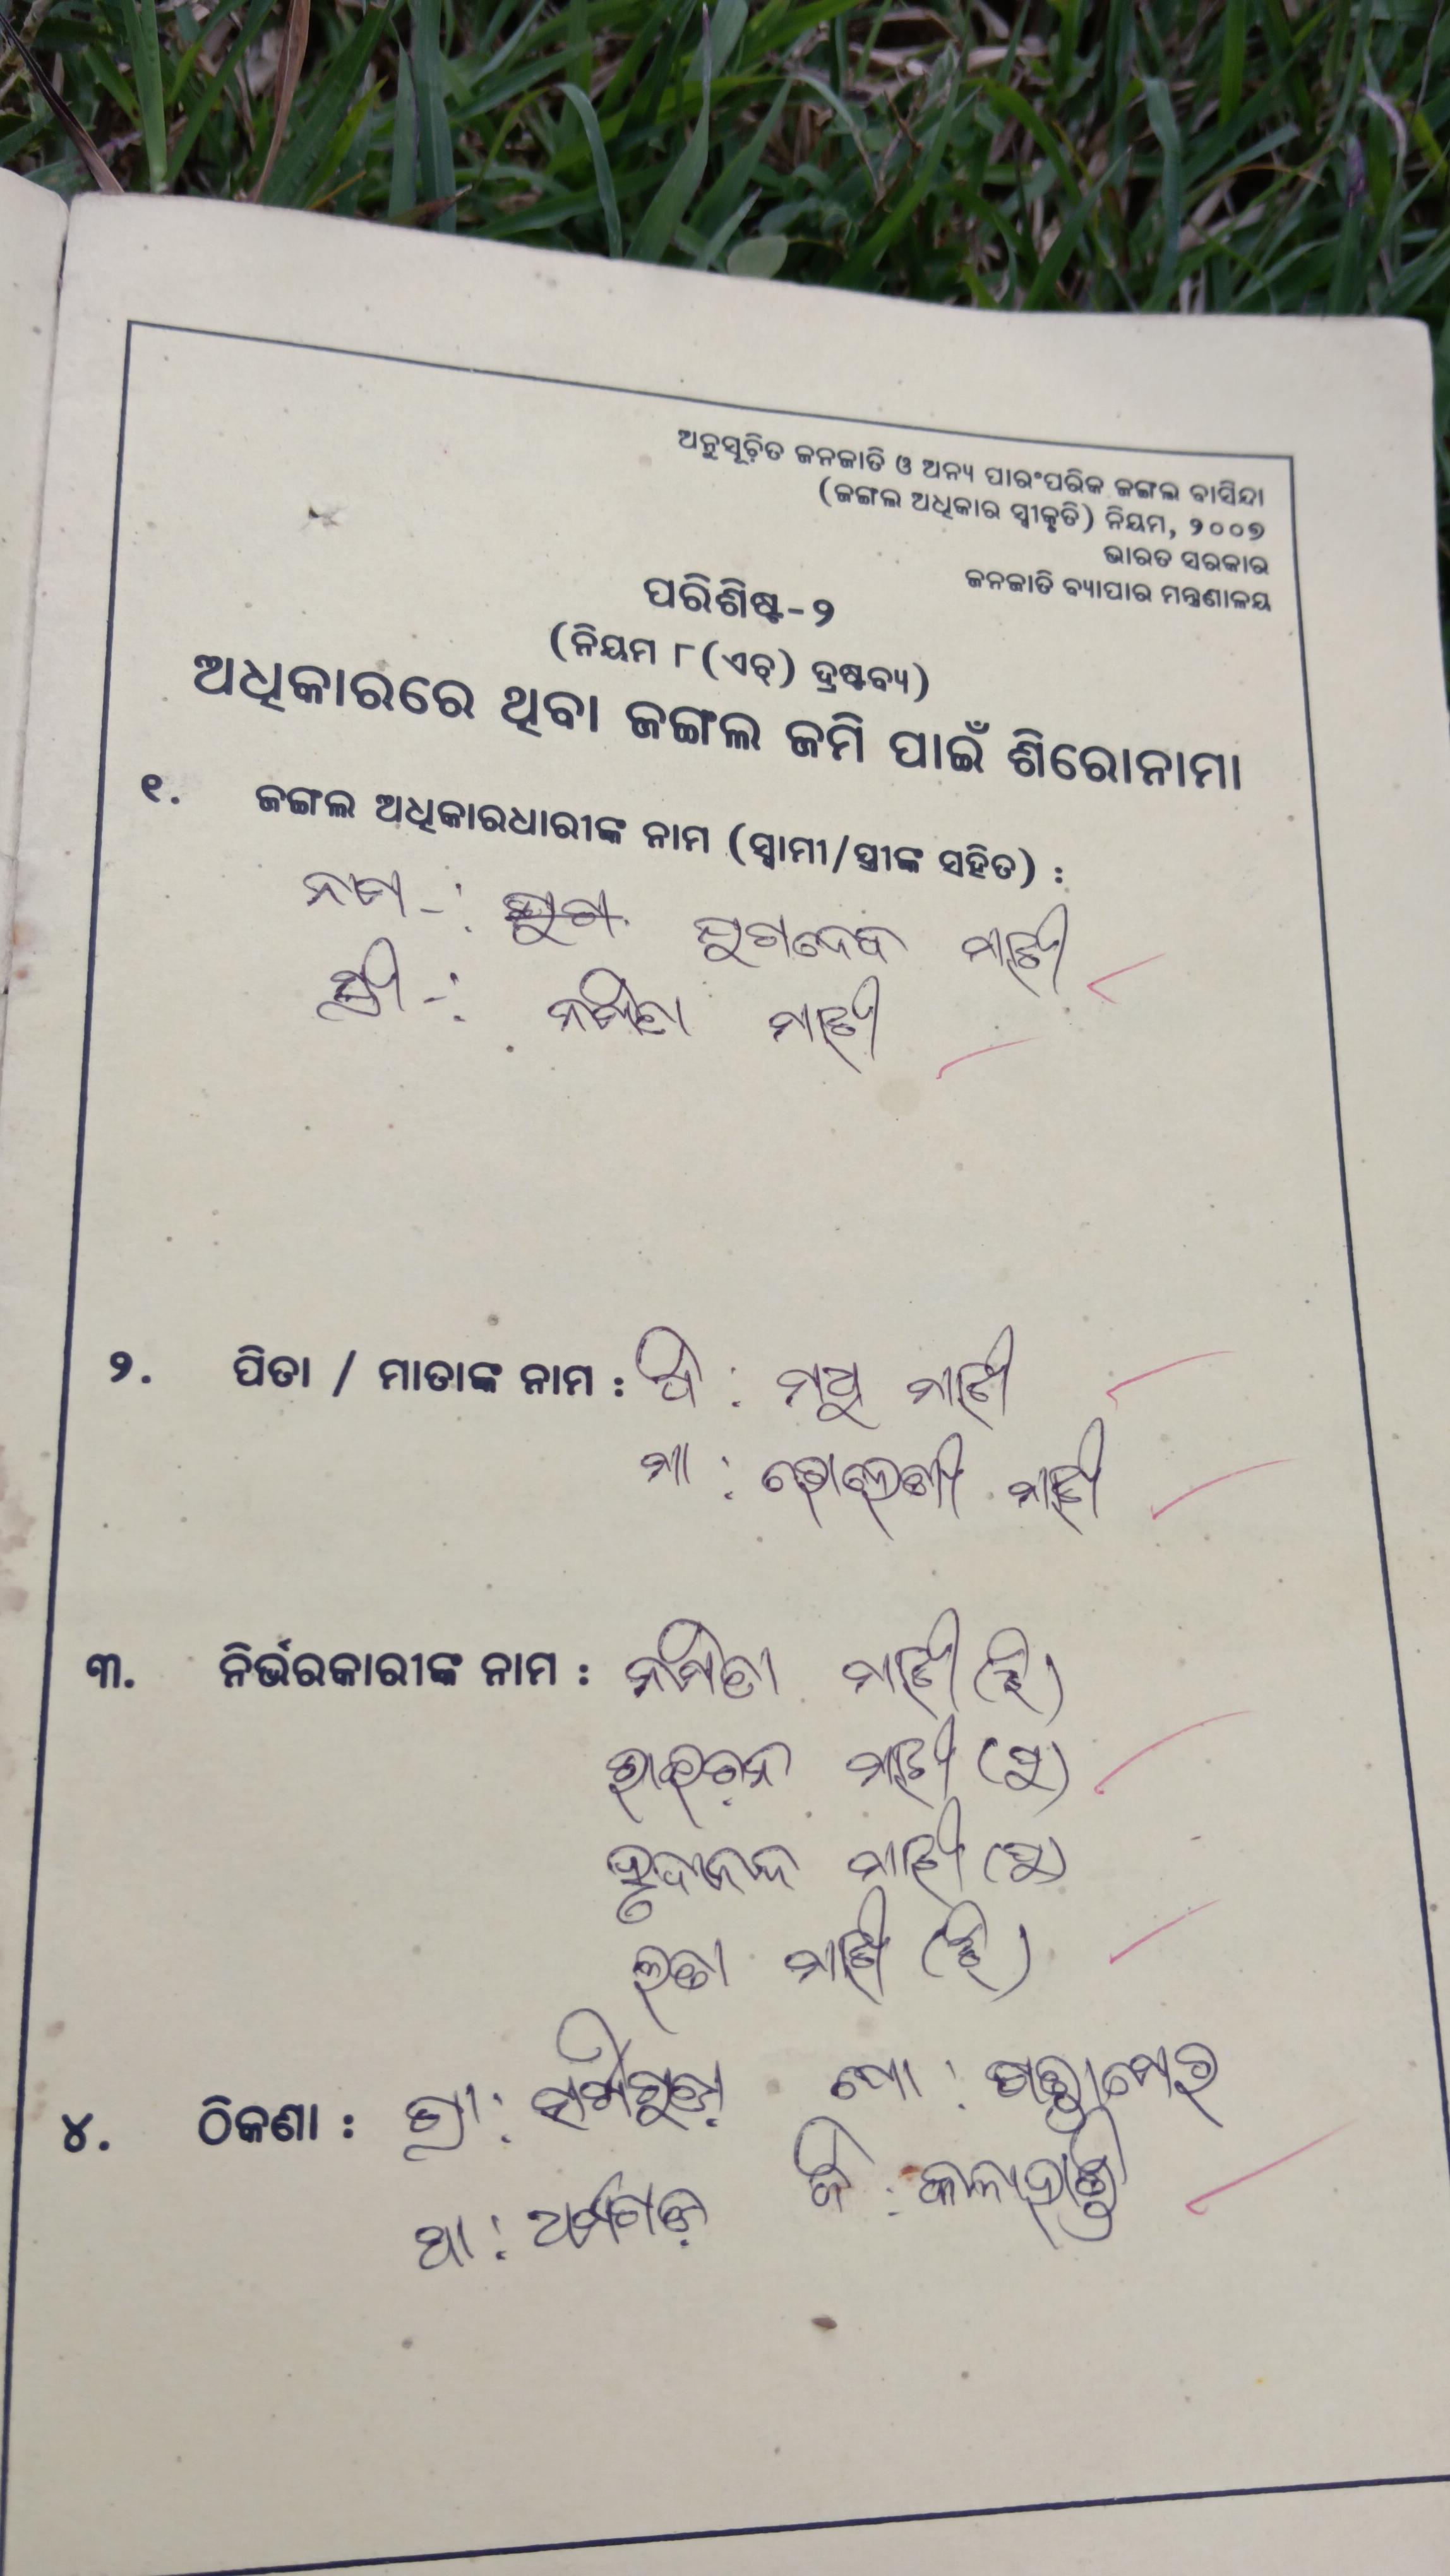 ଅନୁସୂଚିତ ଜନଜାତି ଓ ଅନ୍ୟ ପାରଂପରିକ ଜଙ୍ଗଲ ବାସିନ୍ଦା
(ଜଙ୍ଗଲ ଅଧିକାର ସ୍ୱୀକୃତି) ନିୟମ, ୨୦୦୭
ଭାରତ ସରକାର
ଜନଜାତି ବ୍ୟାପାର ମନ୍ତ୍ରଣାଳୟ
ପରିଶିଷ୍ଟ-୨
(ନିୟମ ୮(ଏଚ୍) ଦ୍ରଷ୍ଟବ୍ୟ)
ଅଧିକାରରେ ଥିବା ଜଙ୍ଗଲ ଜମି ପାଇଁ ଶିରୋନାମା
୧. ଜଙ୍ଗଲ ଅଧିକାରଧାରୀଙ୍କ ନାମ (ସ୍ୱାମୀ/ସ୍ତ୍ରୀଙ୍କ ସହିତ) :
ନାମ -: ମାଝୀ
ସ୍ତ୍ରୀ -: ନମିତା ମାଝୀ
୨. ପିତା / ମାତାଙ୍କ ନାମ : ପି : ମଧୁ ମାଝୀ
ମା : ମାଝୀ
୩. ନିର୍ଭରକାରୀଙ୍କ ନାମ : ନମିତା ମାଝୀ (ଝି)
ମାଝୀ (ପୁ)
ମାଝୀ (ପୁ)
ଲତା ମାଝୀ (ଝି)
୪. ଠିକଣା : ଗ୍ରା : ପୋ :
ଥା : ଧର୍ମଗଡ଼ ଜି : କଳାହାଣ୍ଡି